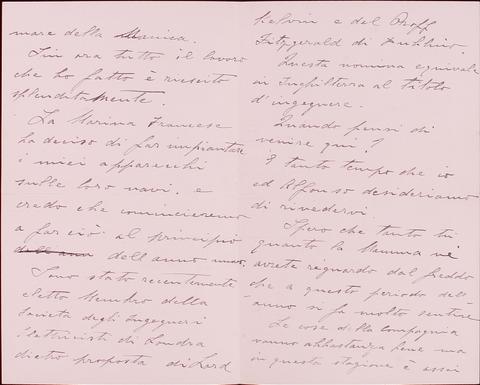 mare della Manica.
Fin ora tutto il lavoro
che ho fatto è riescito
splenditamente.
La Marina Francese
ha deciso di far impiantare
i miei apparecchi
sulle loro navi, e
credo che comincieremo
a far ciò al principio
dell'anno
Sono stato recentemente
eletto Membro della
Società degli Ingegneri
Elettricisti di Londra
dietro proposta di Lord
Kelvin e del Proff
Fitzgerald di Dublino.
Questa nomina equivale
in Inghilterra al titolo
d'ingegnere.
Quando pensi di
venire qui?
È tanto tempo che io
ed Alfonso desideriamo
di rivedervi.
Spero che tanto tu
quanto la Mamma vi
avrete riguardo dal freddo
che a questo periodo dell'
anno si fa molto sentire
Le cose della Compagnia
vanno abbastanza bene ma
in questa stagione e assai